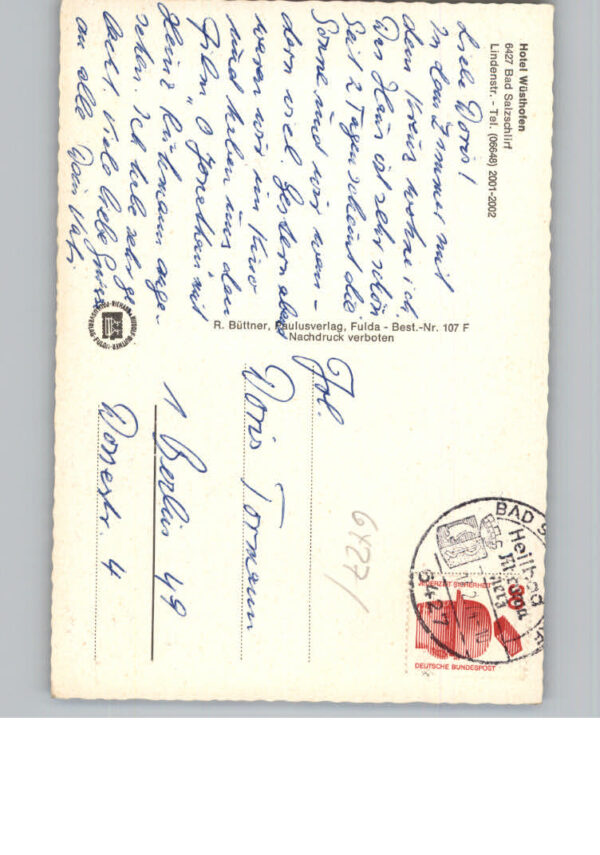 Hotel Wüsthofen
6427 Bad Salzschlirf
Lindenstr. - Tel. (06648) 2001-2002
Liebe Doris!
In dem Zimmer mit
dem Kreuz wohne ich.
Das Haus ist sehr schön
Seit 2 Tagen scheint die
Sonne und wir wan-
dern viel. Gestern abend
waren wir im Kino
und haben uns den
Film „O Jonathan" mit
Heinz Rühmann ange-
sehen. Ich habe sehr ge-
lacht. Viele liebe Grüsse
an alle Dein Vati
R. Büttner, Paulusverlag, Fulda - Best.-Nr. 107 F
Nachdruck verboten
Frl.
Doris Tormann
1 Berlin 49
Dossestr. 4
64271
BAD S
Heilbad
6427
JEDERZEIT SICHERHEIT
30
DEUTSCHE BUNDESPOST